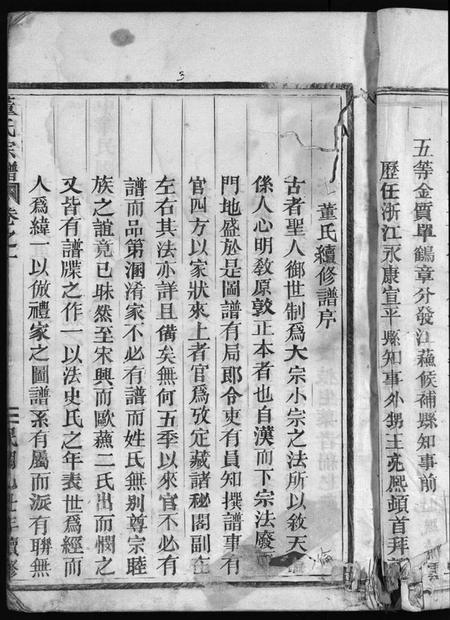 五等金質單鶴章分發江蘇候補縣知事前
歷任浙江永康宣平縣知事外甥王亮熙頓首拜
董氏續修譜序
古者聖人御世制爲大宗小宗之法所以敘天倫
係人心明教原敦正本者也自漢而下宗法廢而
門地盛於是圖譜有局郎令吏有員知撰譜事有
官四方以家狀來上者官爲攷定藏諸秘閣副在
左右其法亦詳且備矣無何五季以來官不必有
譜而品第溷淆家不必有譜而姓氏無别尊宗睦
族之誼竟已昧然至宋興而歐蘇二氏出而憫之
又皆有譜牒之作一以法史氏之年表世爲經而
人爲緯一以倣禮家之圖譜系有屬而派有聯無
董氏宗譜
卷之一